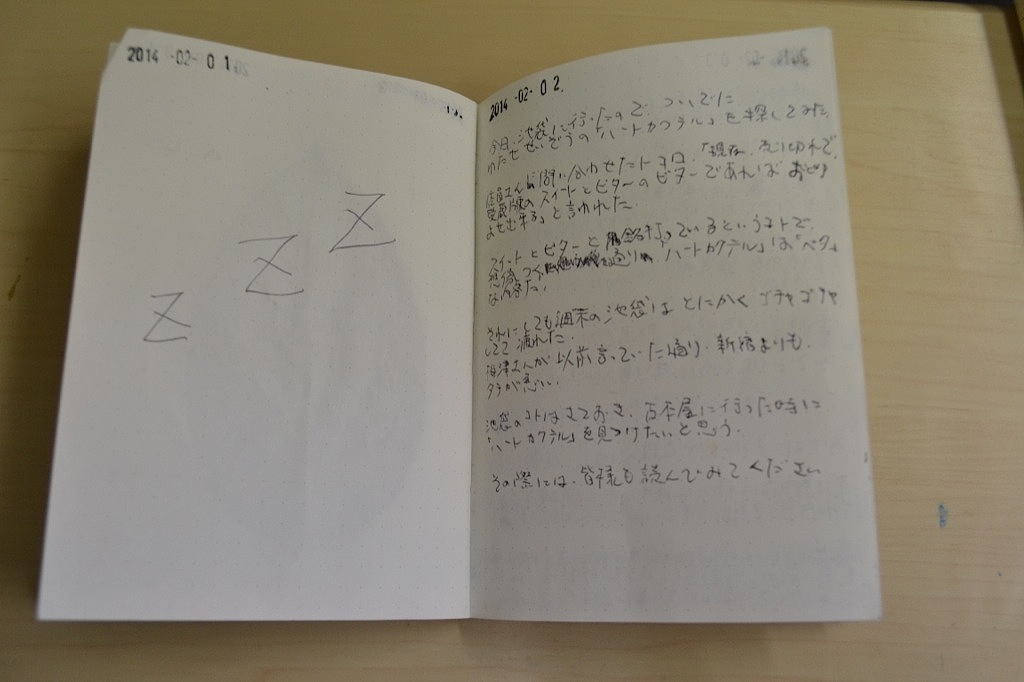 2014 -02- 0 1
Z
Z
Z
2014 -02- 0 2.
今日、池袋に行ったので、ついでに
わたせせいぞうの「ハートカクテル」を探してみた。
店員さんに問い合わせたトコロ、「現在、品切れで、
愛蔵版のスイートとビターのビターであれば お取り
よせ出来る」と言われた。
スイートとビターと 銘打っているというコトで、
想像つく 通り、「ハートカクテル」は「ベタ」
な内容だ。
それにしても週末の池袋は とにかく ゴチャゴチャ
してて 疲れた。
さんが 以前言っていた通り、新宿よりも、
タチが悪い。
池袋のコトはさておき、古本屋に行った時に
「ハートカクテル」を見つけたいと思う。
その際には、皆様も読んでみてください